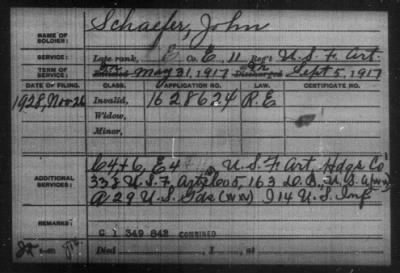 NAME OF SOLDIER: Schaefer, John
SERVICE: Late rank, E Co. E, 11 Reg't U.S.F. Art.
TERM OF SERVICE: Enlisted May 31, 1917 Discharged Sept 5, 1917
DATE OF FILING. CLASS. APPLICATION NO. LAW. CERTIFICATE NO.
1928, Nov 26 Invalid, 1628624 R.E
Widow,
Minor,
64+6, E 4 U.S.F. Art, Hdqs Co
ADDITIONAL SERVICES: 338 U.S.F. Art, 163 D.B., U.S.A (WW)
29 U.S. Gds (WW) 14 U.S. Inf
REMARKS: C 1 349 848 COMBINED
Died , 1 , at